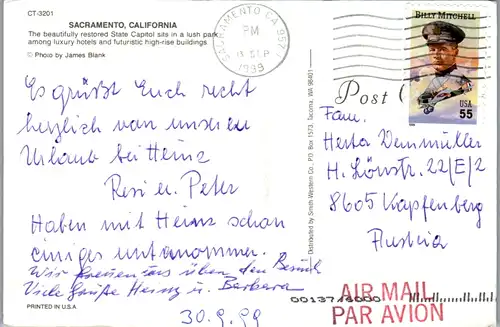 CT-3201
SACRAMENTO, CALIFORNIA
The beautifully restored State Capitol sits in a lush park,
among luxury hotels and futuristic high-rise buildings
© Photo by James Blank
SACRAMENTO CA 957
PM
SEP
1999
BILLY MITCHELL
USA
55
Post
Es grüßt Euch recht
herzlich von unserem
Urlaub bei Heinz
Resi u. Peter
Haben mit Heinz schon
einiges unternommen.
Wir freuen uns über den Besuch
Viele Grüße Heinz u. Barbara
30.9.99
Distributed by Smith Western Co. - P.O. Box 1573, Tacoma, WA 98401
Fam.
Herta Demmüller
H. Lönsstr. 22/E/2
8605 Kapfenberg
Austria
AIR MAIL
PAR AVION
0013713000
PRINTED IN U.S.A.